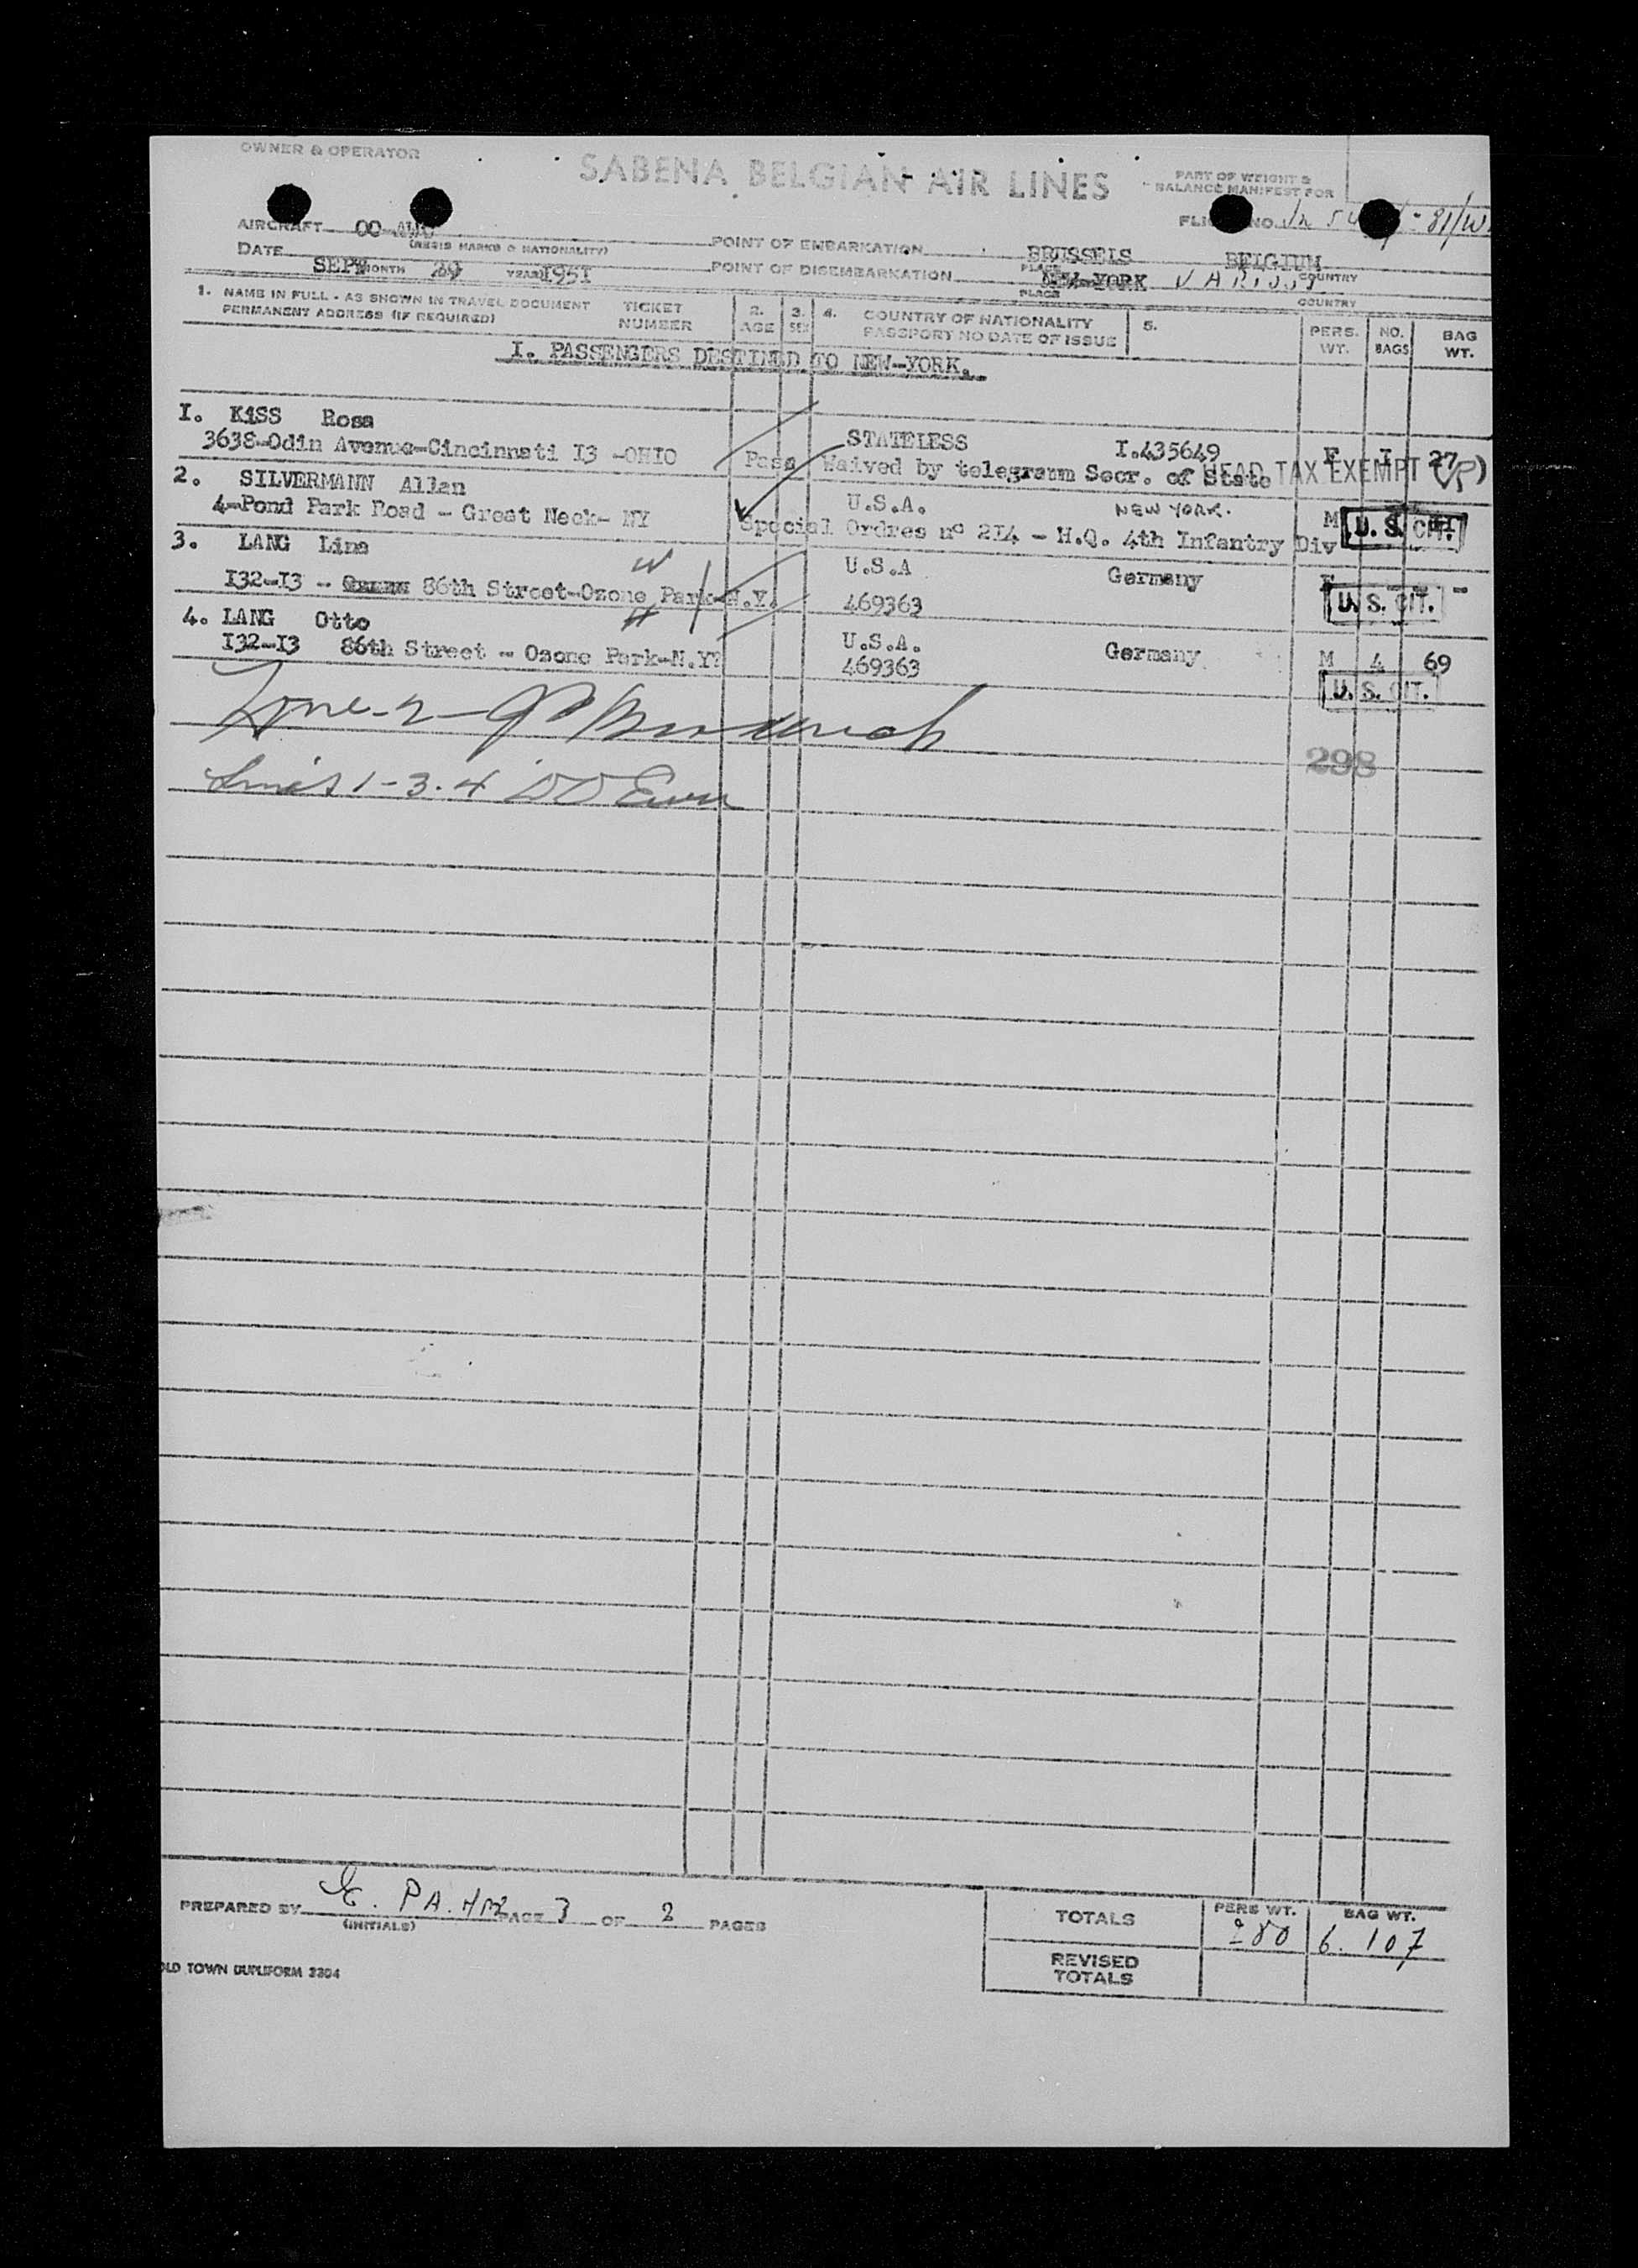 OWNER & OPERATOR
SABENA BELGIAN AIR LINES
PART OF WEIGHT &
BALANCE MANIFEST FOR
FLI NO.
AIRCRAFT OO-AWC
(REGIS MARKS & NATIONALITY)
POINT OF EMBARKATION BRUSSELS BELGIUM
PLACE COUNTRY
DATE SEPT 29 1951
MONTH YEAR
POINT OF DISEMBARKATION NEW-YORK
PLACE COUNTRY
1. NAME IN FULL - AS SHOWN IN TRAVEL DOCUMENT TICKET 2. 3. 4. COUNTRY OF NATIONALITY 5. PERS. NO. BAG
PERMANENT ADDRESS (IF REQUIRED) NUMBER AGE SEX PASSPORT NO DATE OF ISSUE WT. BAGS WT.
I. PASSENGERS DESTINED TO NEW-YORK.
I. KISS Rosa STATELESS I.435649 F I 37
3638-Odin Avenue-Cincinnati I3 -OHIO Pass Waived by telegramm Secr. of State HEAD TAX EXEMPT
2. SILVERMANN Allan U.S.A. NEW YORK. M
4-Pond Park Road - Great Neck- NY Special Ordres nº 2I4 - H.Q. 4th Infantry Div U.S. CIT.
3. LANG Lina W U.S.A Germany F - -
I32-I3 - 86th Street-Ozone Park-N.Y. 469363 U.S. CIT.
4. LANG Otto H U.S.A. Germany M 4 69
I32-I3 86th Street - Ozone Park-N.Y. 469363 U.S. CIT.
298
1-3-4
PREPARED BY PAGE 3 OF 2 PAGES
(INITIALS)
TOTALS PERS WT. 280 BAG WT. 6. 107
REVISED
TOTALS
OLD TOWN DUPLIFORM 3304